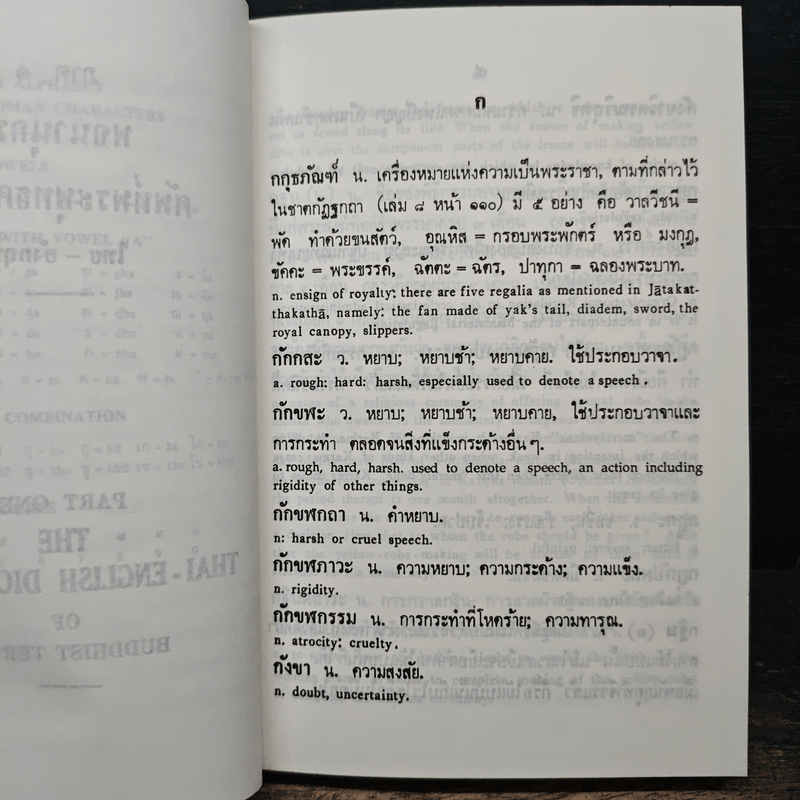 ก
กกุธภัณฑ์ น. เครื่องหมายแห่งความเป็นพระราชา, ตามที่กล่าวไว้
ในชาตกัฏฐกถา (เล่ม ๘ หน้า ๑๑๐) มี ๕ อย่าง คือ วาลวีชนี =
พัด ทำด้วยขนสัตว์, อุณหิส = กรอบพระพักตร์ หรือ มงกุฎ,
ขัคคะ = พระขรรค์, ฉัตตะ = ฉัตร, ปาทุกา = ฉลองพระบาท.
n. ensign of royalty; there are five regalia as mentioned in Jātakat-
thakathā, namely: the fan made of yak's tail, diadem, sword, the
royal canopy, slippers.
กักกสะ ว. หยาบ; หยาบช้า; หยาบคาย. ใช้ประกอบวาจา.
a. rough: hard: harsh, especially used to denote a speech.
กักขฬะ ว. หยาบ; หยาบช้า; หยาบคาย, ใช้ประกอบวาจาและ
การกระทำ ตลอดจนสิ่งที่แข็งกระด้างอื่น ๆ.
a. rough, hard, harsh. used to denote a speech, an action including
rigidity of other things.
กักขฬกถา น. คำหยาบ.
n: harsh or cruel speech.
กักขฬภาวะ น. ความหยาบ; ความกระด้าง; ความแข็ง.
n. rigidity.
กักขฬกรรม น. การกระทำที่โหดร้าย; ความทารุณ.
n. atrocity: cruelty.
กังขา น. ความสงสัย.
n. doubt, uncertainty.